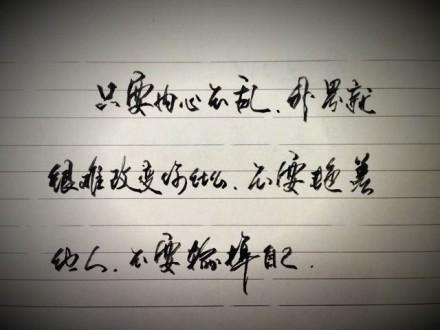 只要内心不乱,外界就
很难改变你什么,不要艳羡
他人,不要输掉自己.